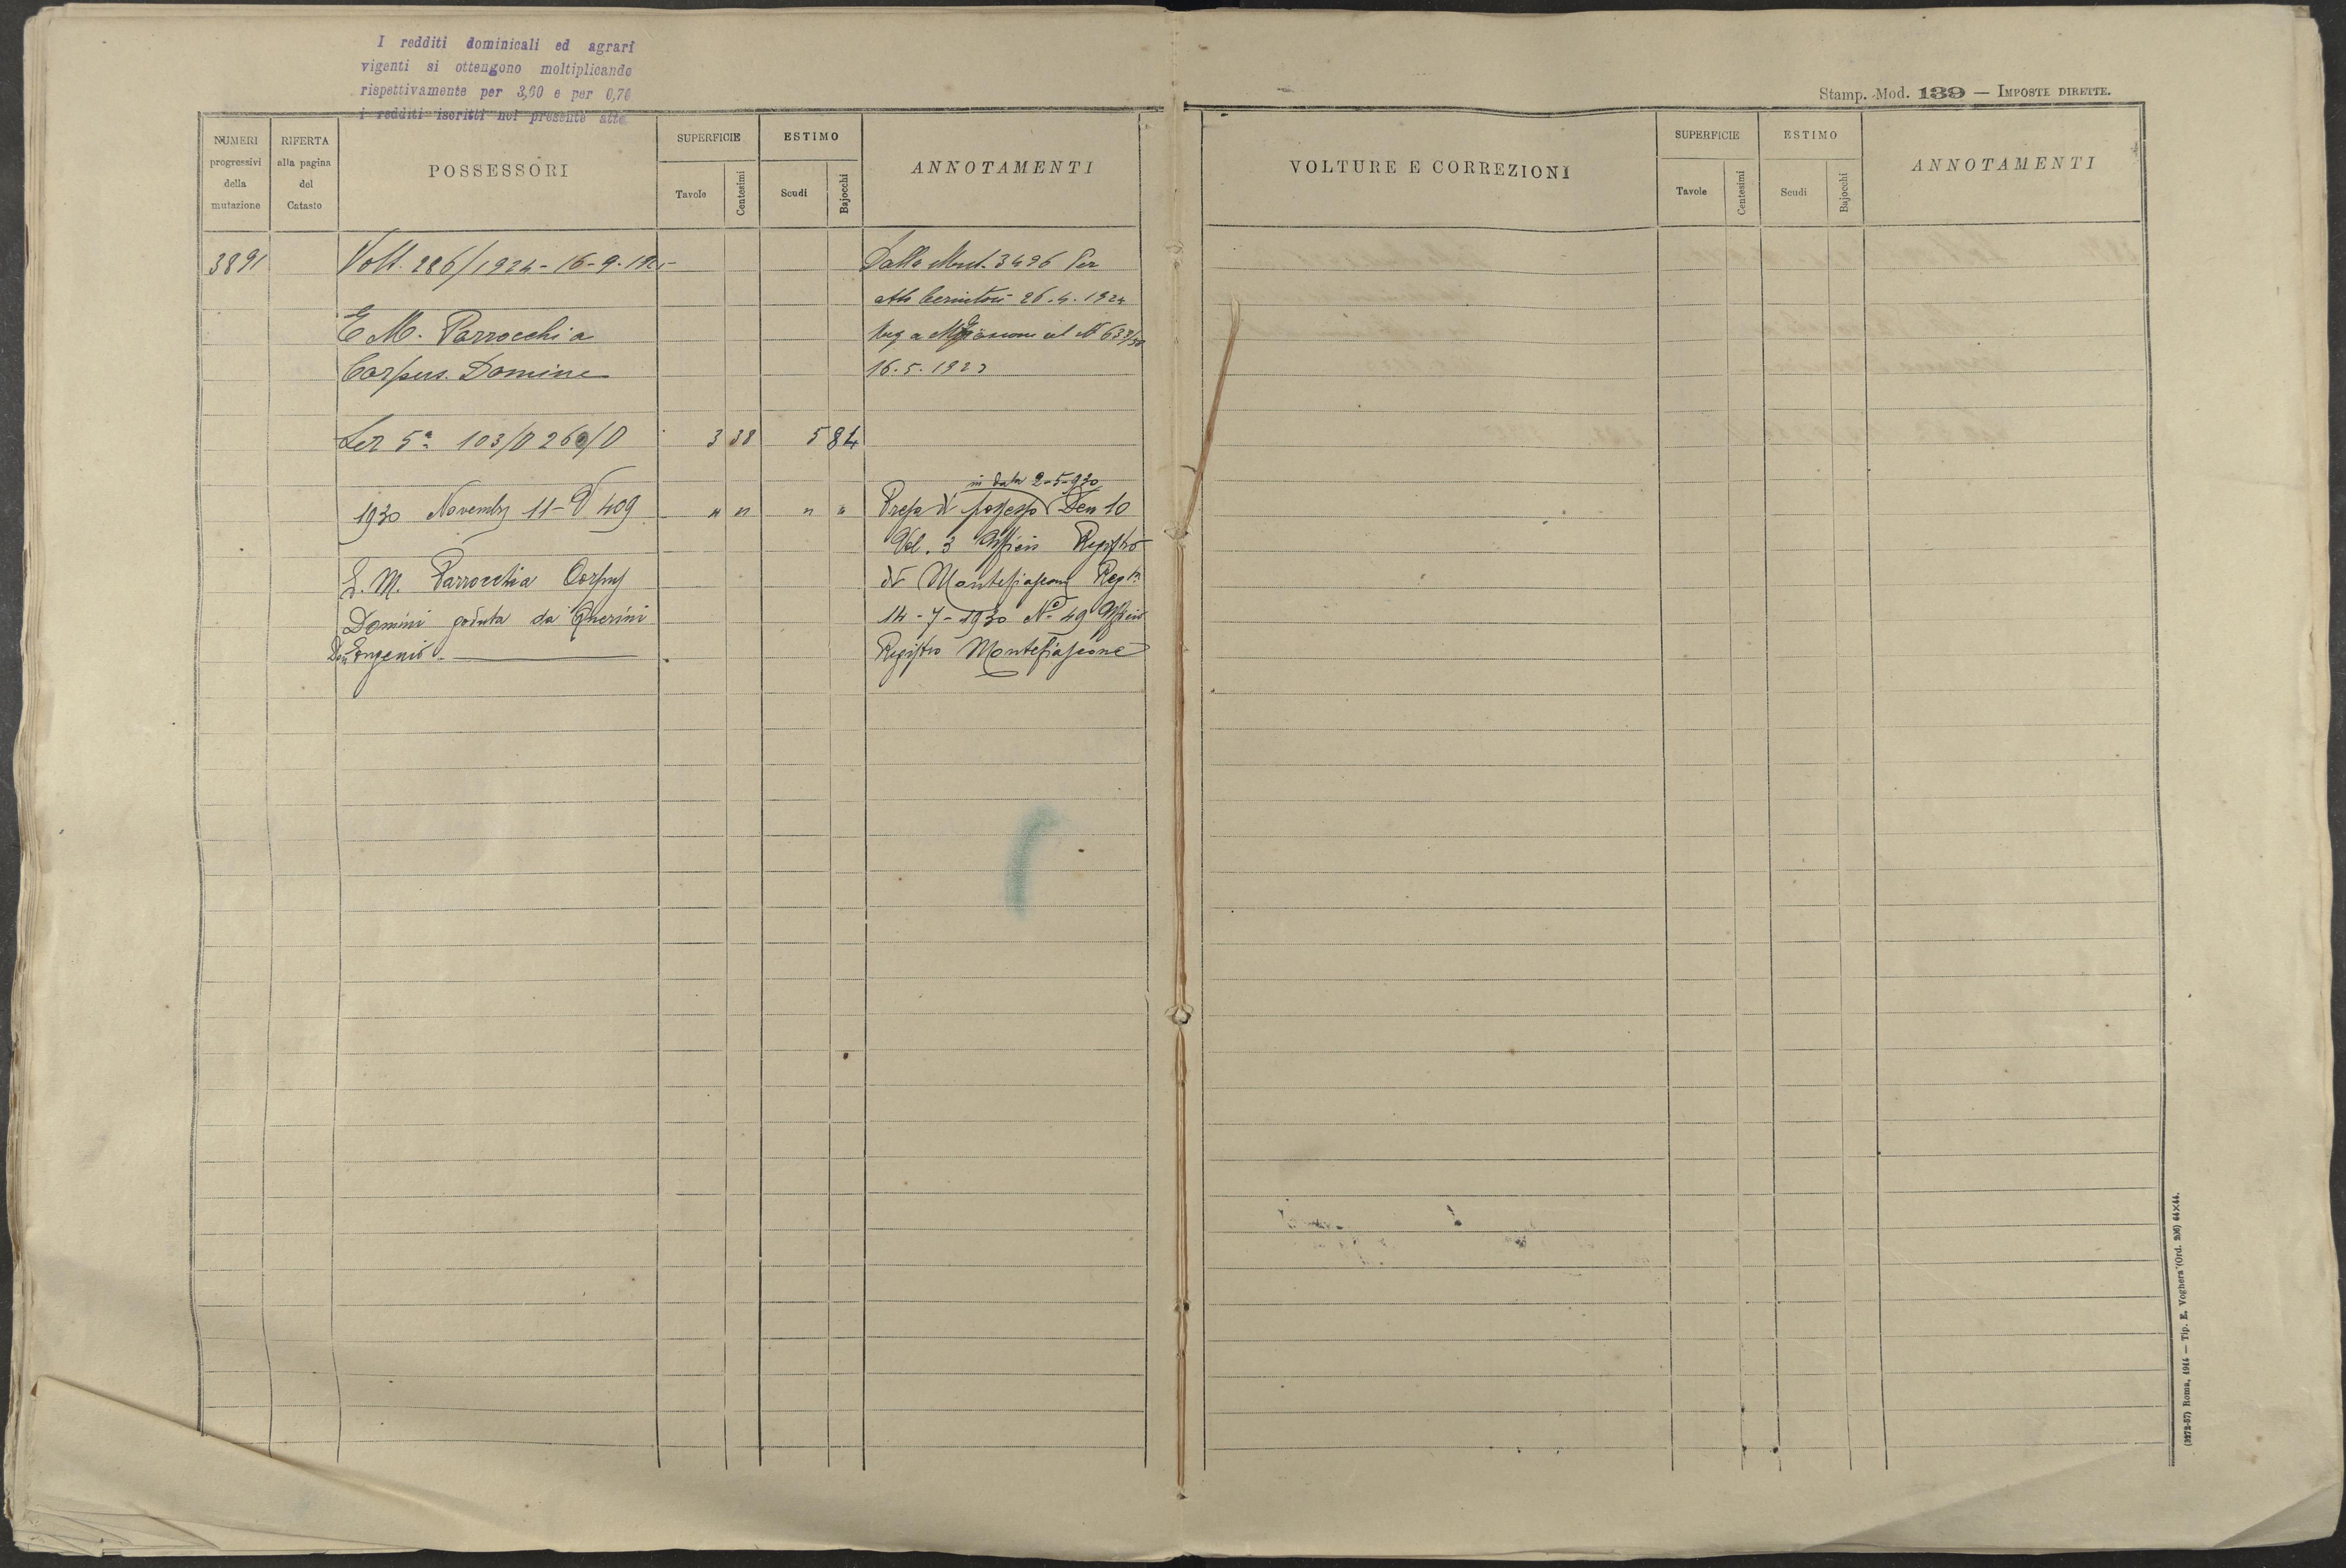 I redditi dominicali ed agrari
vigenti si ottengono moltiplicando
rispettivamente per 3,60 e per 0,76
i redditi iscritti nel presente atto
Stamp. Mod. 139 — IMPOSTE DIRETTE.
NUMERI progressivi della mutazione
RIFERTA alla pagina del Catasto
POSSESSORI
SUPERFICIE
Tavole
Centesimi
ESTIMO
Scudi
Bajocchi
ANNOTAMENTI
VOLTURE E CORREZIONI
SUPERFICIE
Tavole
Centesimi
ESTIMO
Scudi
Bajocchi
ANNOTAMENTI
3891 Volt. 286/1924 - 16-9- Dalla Mut. 3496 Per
atto 26.4.1924
E M. Parrocchia Reg a al N
Corpus Domine 16.5.192
Sez 5ª 103/D 260/D 3 38 5 84
in data 2-5-930
1930 Novembre 11 - N 409 " " " " Presa di possesso Den 10
Vol. 3 Ufficio Registro
E. M. Parrocchia Corpus di Montefiascone
Domini goduta da Guerini 14-7-1930 Nº 49 Ufficio
Don Eugenio Registro Montefiascone
(3272-57) Roma, 1914 — Tip. E. Voghera (Ord. 206) 64×44.